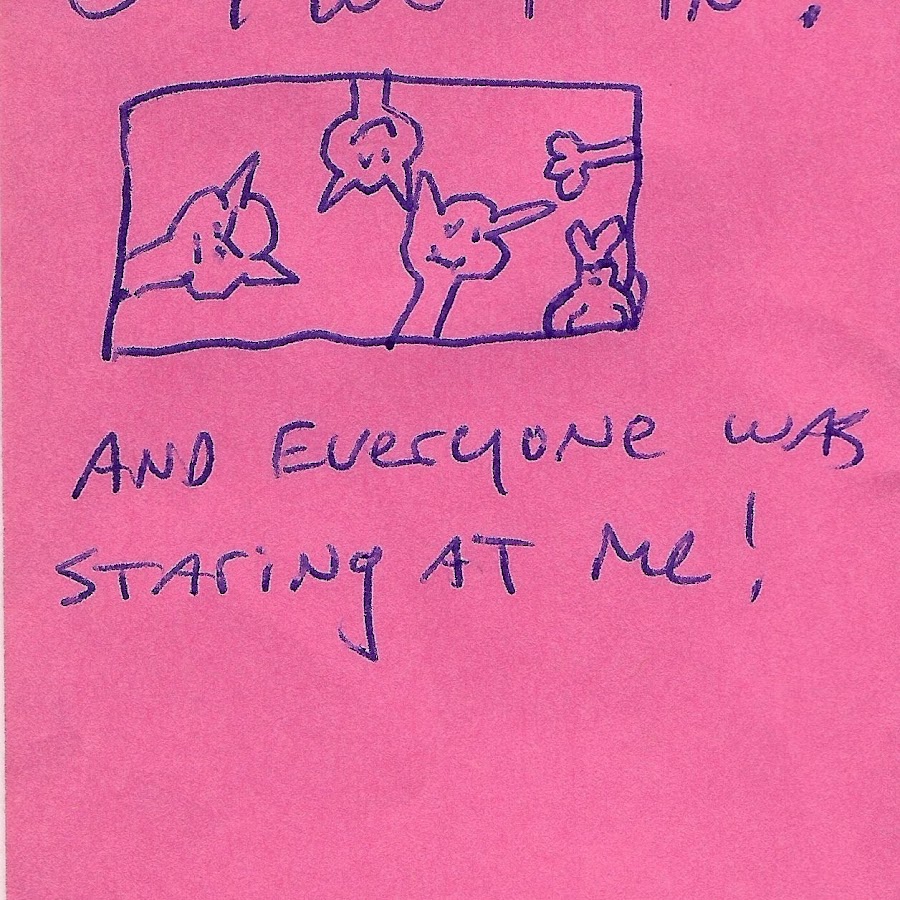 AND EVERYONE WAS
STARING AT ME!